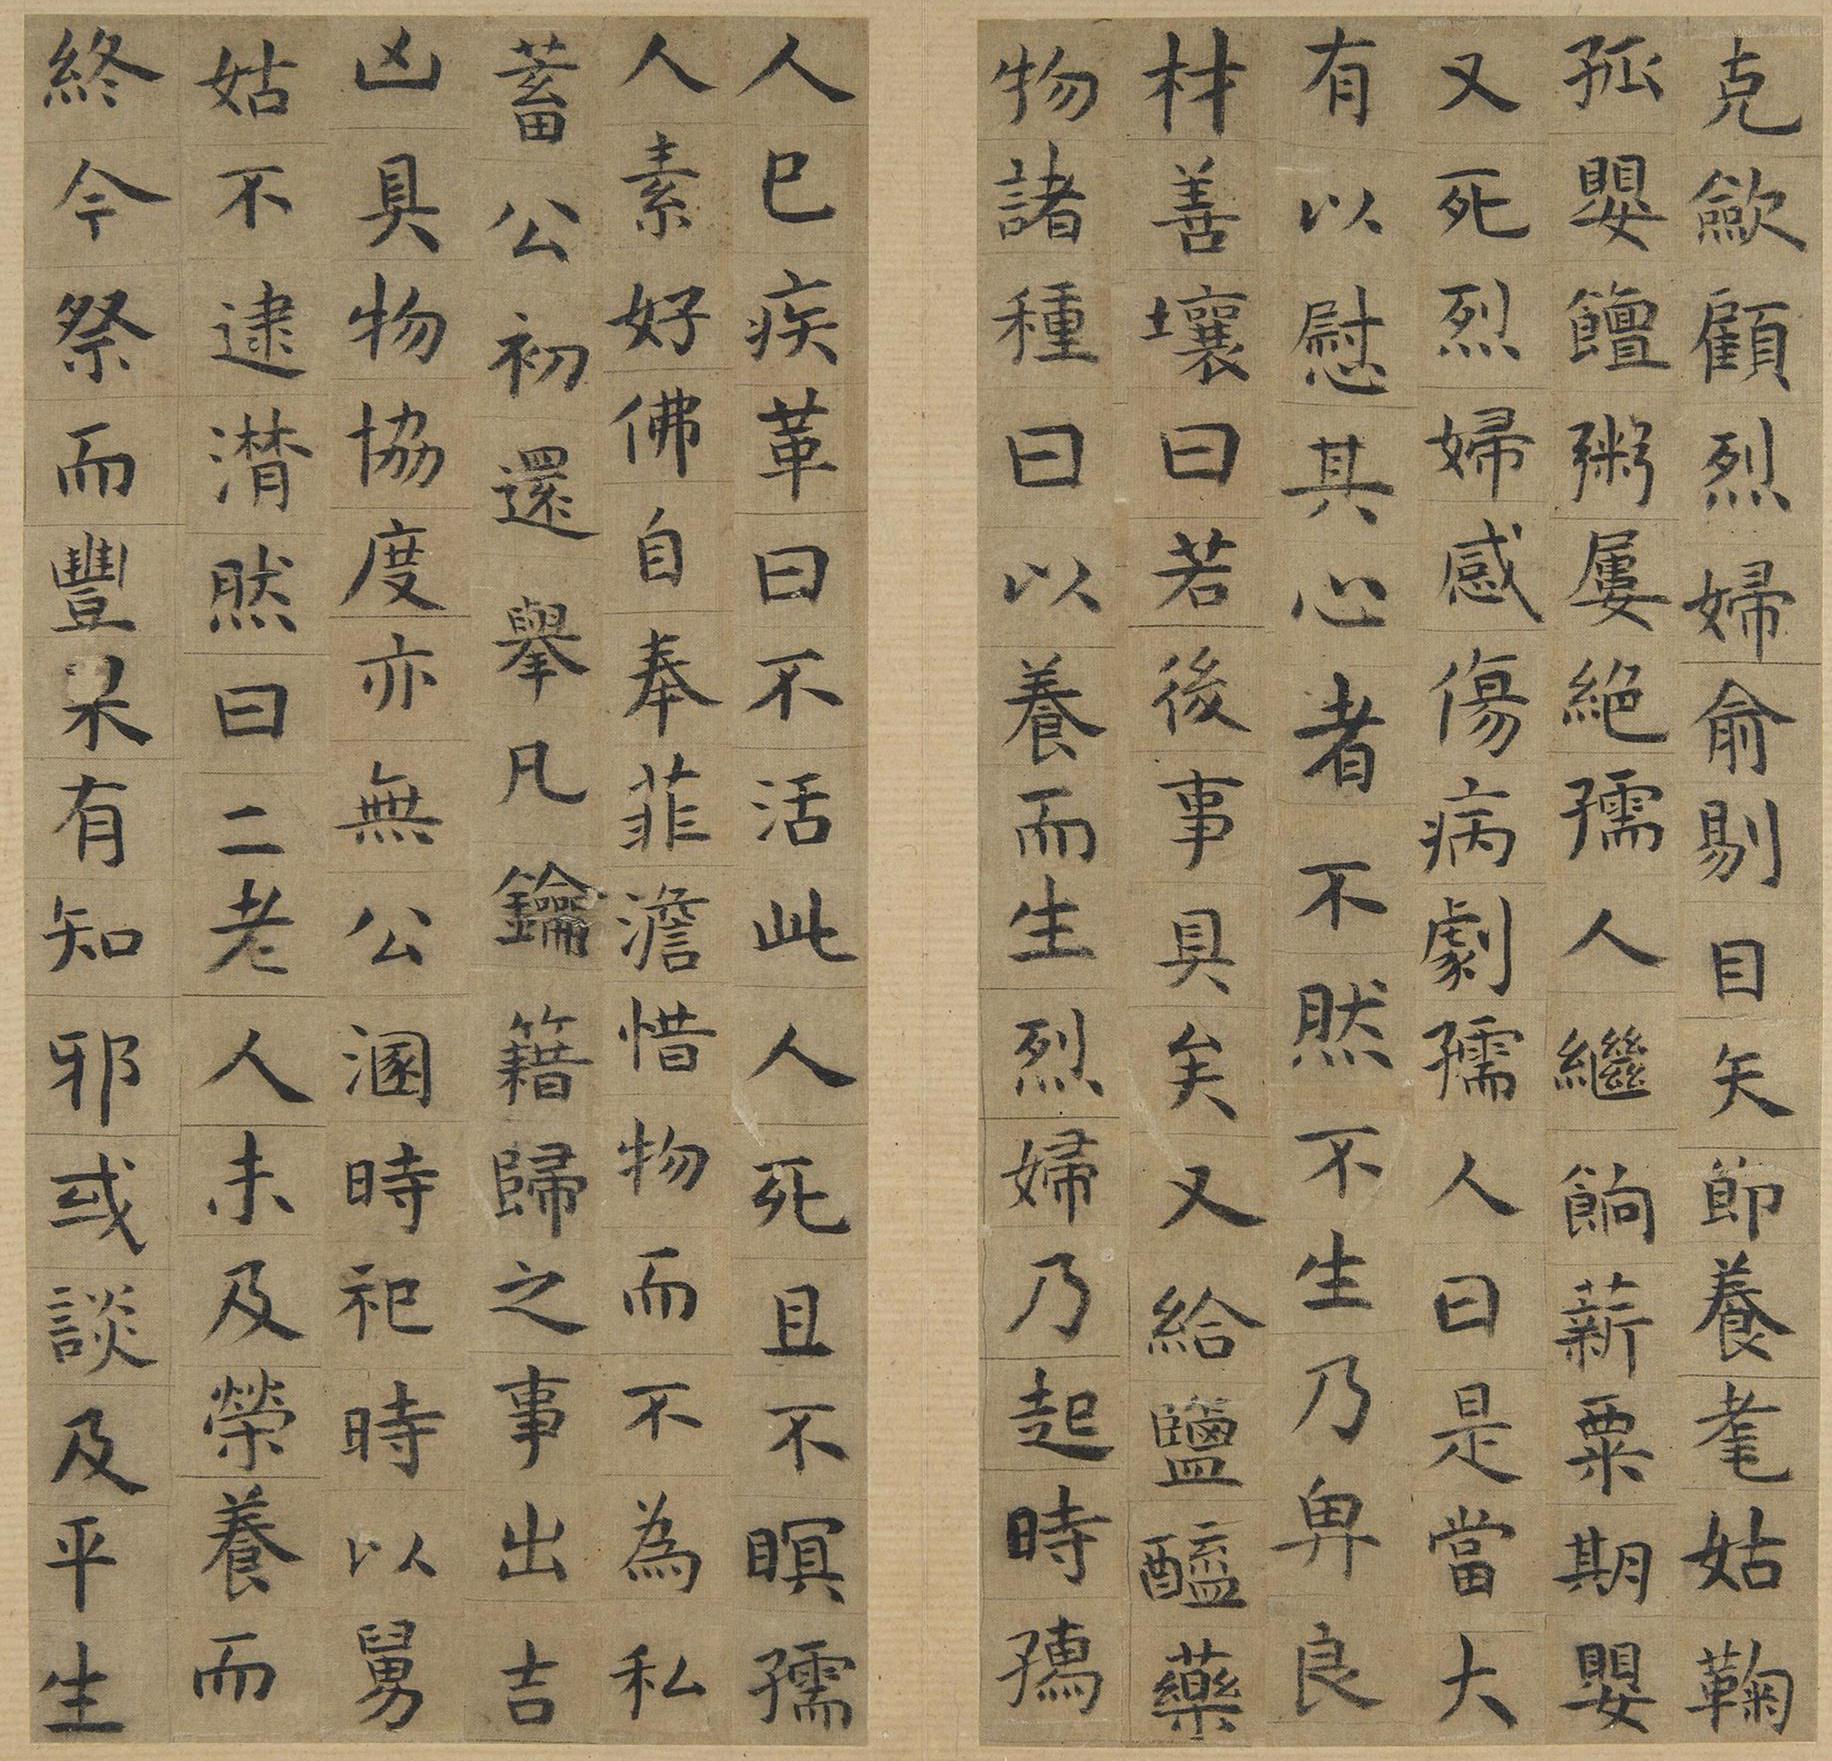 克歛顧烈婦俞剔目矢節養耄姑鞠
孤嬰饘粥屢絕孺人繼餉薪粟期嬰
又死烈婦感傷病劇孺人曰是當大
有以慰其心者不然不生乃畀良
材善壤曰若後事具矣又給鹽醯藥
物諸種曰以養而生烈婦乃起時孺
人已疾革曰不活此人死且不瞑孺
人素好佛自奉菲澹惜物而不為私
蓄公初還舉凡鑰籍歸之事出吉
凶具物協度亦無公溷時祀時以舅
姑不逮潸然曰二老人未及榮養而
終今祭而豐其有知邪或談及平生